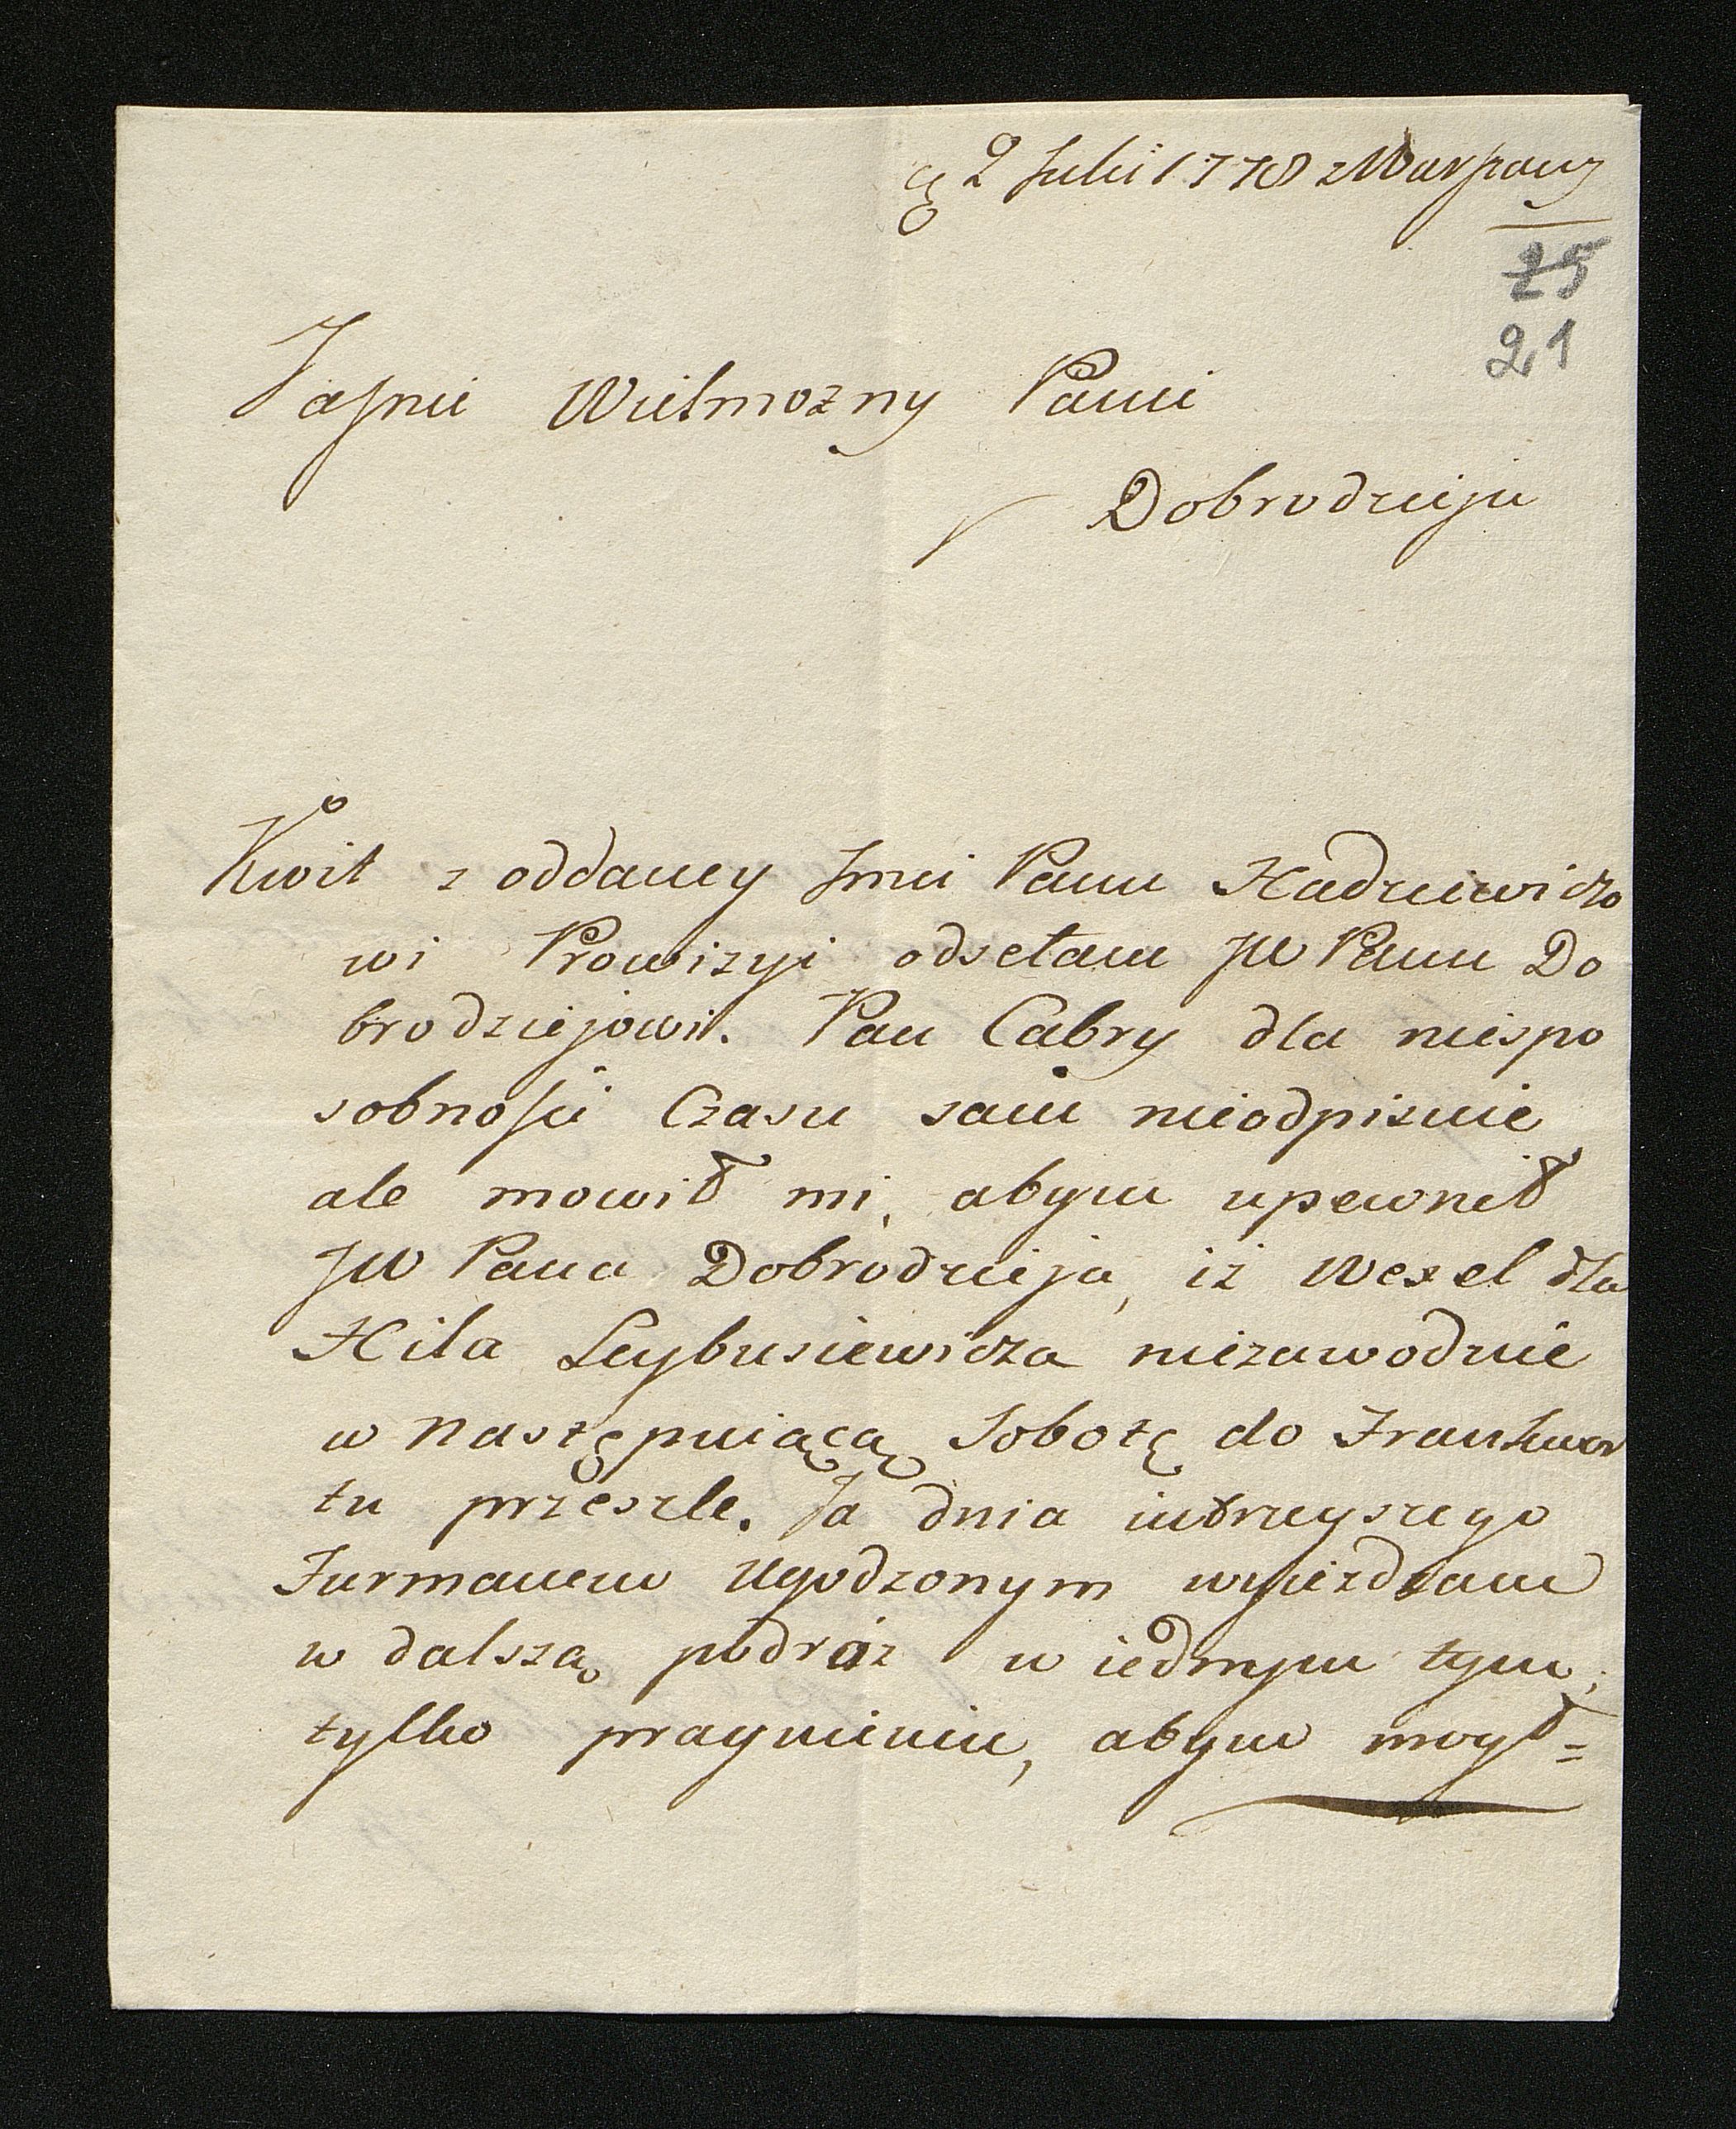 2 Julii 1778 z Warszawy
25
21
Jaśnie Wielmozny Panie
Dobrodzieju
Kwit z oddaney Jmci Panu Hadziewiczo
wi Prowizyi odsełam JW Panu Do
brodziejowi. Pan Cabry dla niespo
sobności Czasu sam nieodpisuie
ale mowił mi, abym upewnił
JW Pana Dobrodzieja, iż Wexel dla
Hila Leybusiewicza niezawodnie
w następuiącą Sobotę do Frankwor
tu prześzle. Ja dnia iutrzeyszego
Furmanem Ugodzonym wyieżdżam
w dalszą podróż w iednym tym,
tylko pragnieniu, abym mogł=